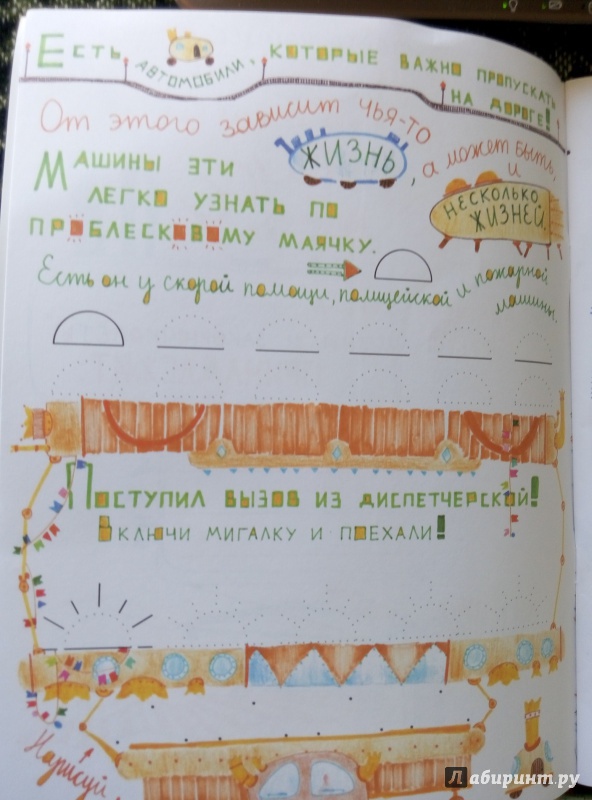 Есть автомобили, которые важно пропускать
на дороге!
От этого зависит чья-то жизнь, а может быть,
и
несколько
жизней.
Машины эти
легко узнать по
проблесковому маячку.
Есть он у скорой помощи, полицейской и пожарной
машины.
Поступил вызов из диспетчерской!
Включи мигалку и поехали!
Нарисуй
Лабиринт.ру